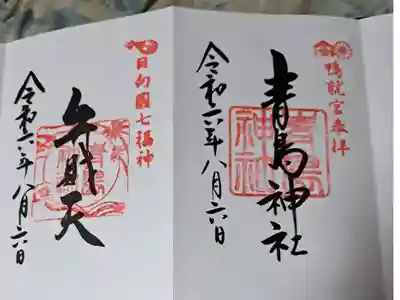 鴨就宮奉拝
青島神社
青島神社
令和六年八月六日
日向國七福神
弁財天
令和六年八月六日